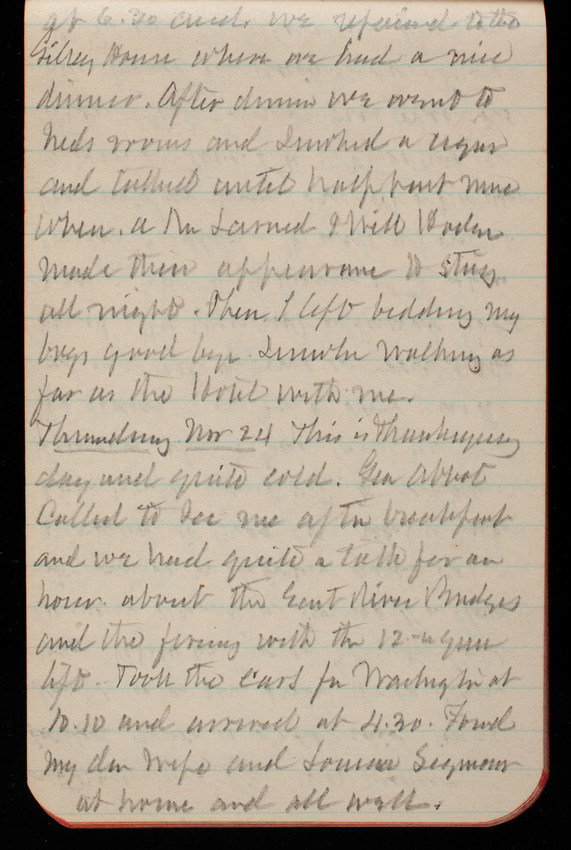 at 6.30 and we repaired to the
Gilsey House where we had a nice
dinner. After dinner we went to
Neds rooms and smoked a cigar
and talked until half past nine
when a Mr Larned & Will
made their appearance to stay
all night. Then I left bidding my
boys good bye. Lincoln walking as
far as the Hotel with me.
Thursday Nov 24 This is Thanksgiving
day and quite cold. Gen Abbot
Called to see me after breakfast
and we had quite a talk for an
hour about the East River Bridges
and the firing with the 12-in gun
lift. Took the cars for Washington at
10.10 and arrived at 4.30. Found
my dear wife and Louisa Seymour
at home and all well.